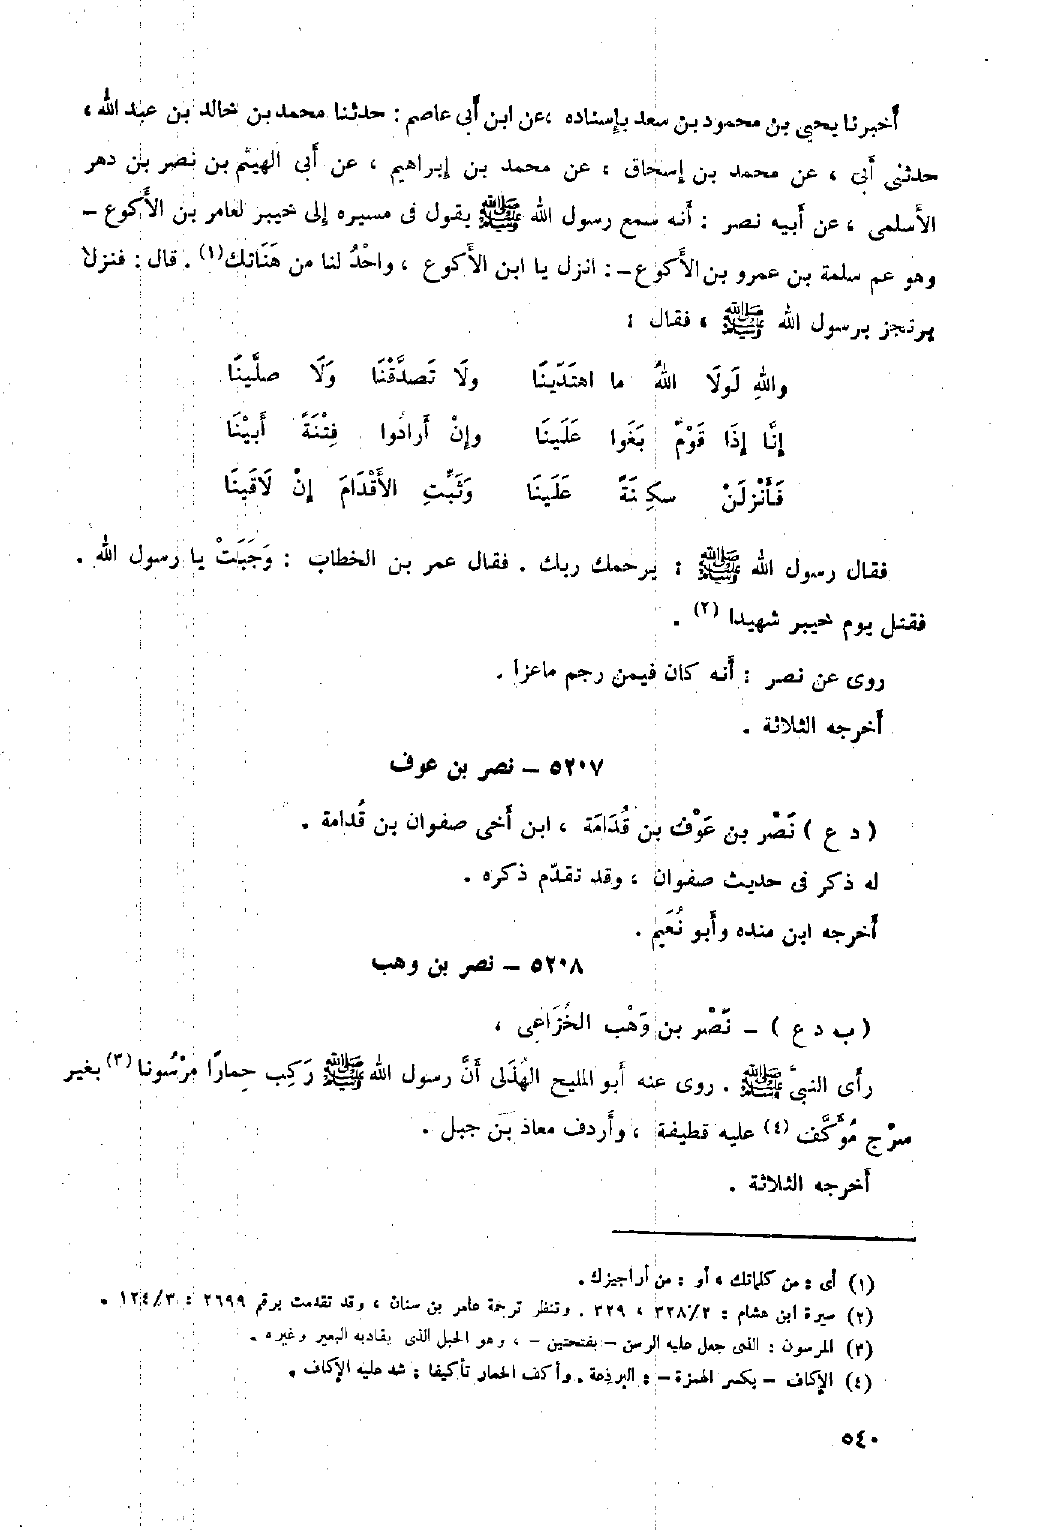 أخبرنا يحيى بن محمود بن سعد بإسناده ، عن ابن أبى عاصم : حدثنا محمد بن خالد بن عبد الله ،
حدثنى أبى ، عن محمد بن إسحاق ، عن محمد بن إبراهيم ، عن أبى الهيثم بن نصر بن دهر
الأسلمى ، عن أبيه نصر : أنه سمع رسول الله ﷺ يقول فى مسيره إلى خيبر لعامر بن الأكوع –
وهو عم سلمة بن عمرو بن الأكوع –: انزل يا ابن الأكوع ، واحْدُ لنا من هَنَاتك (١) . قال : فنزلا
يرتجز برسول الله ﷺ ، فقال :
واللهِ لَولَا اللهُ ما اهتَدَينَا ولَا تَصدَّقْنَا وَلَا صلَّينَا
إنَّا إذَا قَوْمٌ بَغَوا عَلَينَا وإنْ أرادُوا فِتْنَةً أبيْنَا
فَأنْزِلَنْ سكِينَةً عَلَينَا وَثَبِّتِ الأَقْدَامَ إنْ لَاقَينَا
فقال رسول الله ﷺ : يرحمك ربك . فقال عمر بن الخطاب : وَجَبَتْ يا رسول الله .
فقتل يوم خيبر شهيدا (٢) .
روى عن نصر : أنه كان فيمن رجم ماعزا .
أخرجه الثلاثة .
٥٢٠٧ – نصر بن عوف
( د ع ) نَصْر بن عَوْف بن قُدَامَة ، ابن أخى صفوان بن قُدامة .
له ذكر فى حديث صفوان ، وقد تقدّم ذكره .
أخرجه ابن منده وأبو نُعَيم .
٥٢٠٨ – نصر بن وهب
( ب د ع ) – نَصْر بن وَهْب الخُزَاعِى ،
رأى النبىَّ ﷺ . روى عنه أبو المليح الهُذَلى أنَّ رسول الله ﷺ رَكِب حِمارًا مَرْسُونا (٣) بغير
سرْج مُؤَكَّف (٤) عليه قطيفة ، وأردف معاذ بن جبل .
أخرجه الثلاثة .
(١) أى : من كلماتك ، أو : من أراجيزك .
(٢) سيرة ابن هشام : ٣٢٨/٢ ، ٣٢٩ . وتنظر ترجمة عامر بن سنان ، وقد تقدمت برقم ٢٦٩٩ : ١٢٤/٣ .
(٣) المرسون : الذى جعل عليه الرسن – بفتحتين – ، وهو الحبل الذى يقاد به البعير وغيره .
(٤) الإكاف – بكسر الهمزة – : البرذعة . وأكف الحمار تأكيفا : شد عليه الإكاف .
٥٤٠